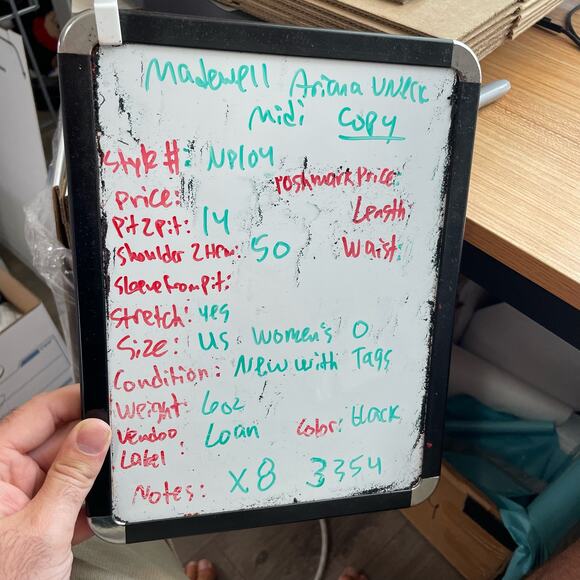 Madewell Ariana VNeck
Midi Copy
Style #: NP104
Poshmark Price:
Price:
Pit2pit: 14
Length:
Shoulder 2 Hem: 50
Waist:
Sleeve from pit:
Stretch: yes
Size: US Women's 0
Condition: New with Tags
Weight: 6oz
Vendoo Label: Loan
Color: Black
Notes: x8 3354